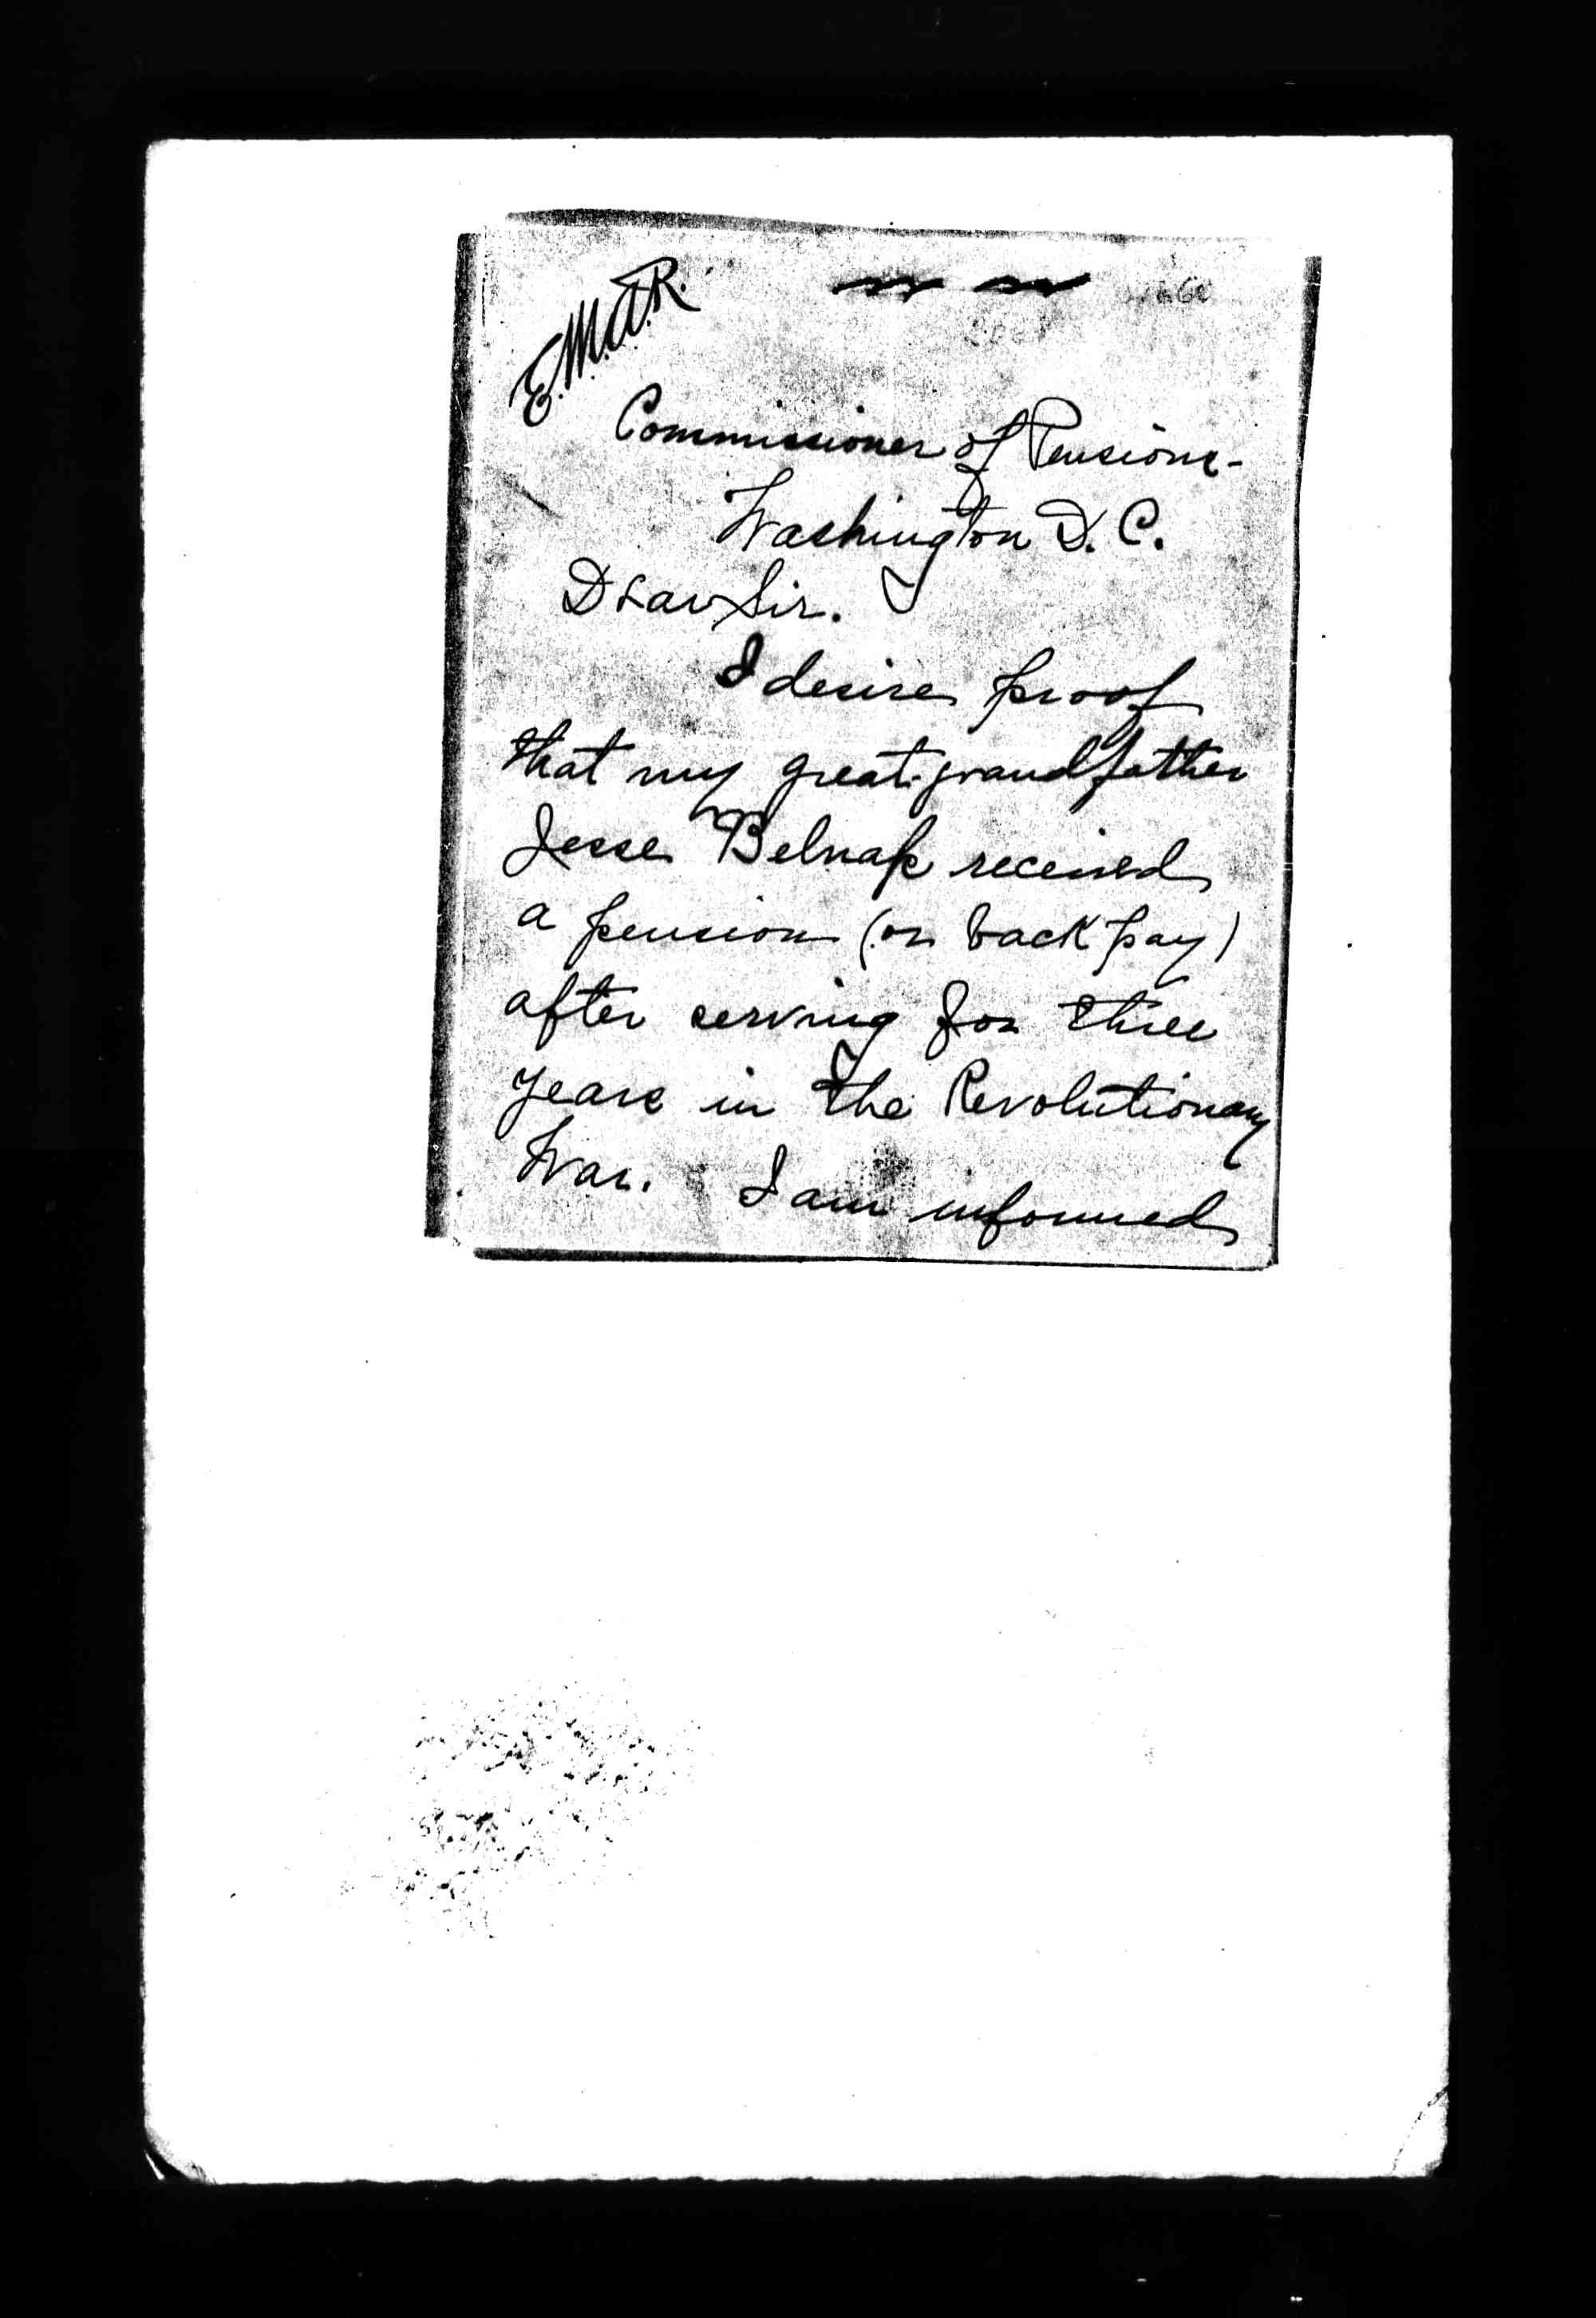 E.M.A.R.
Commissioner of Pensions-
Washington D.C.
Dear Sir.
I desire proof
that my great-grandfather
Jesse Belnap received
a pension (or back pay)
after serving for three
years in the Revolutionary
War. I am informed